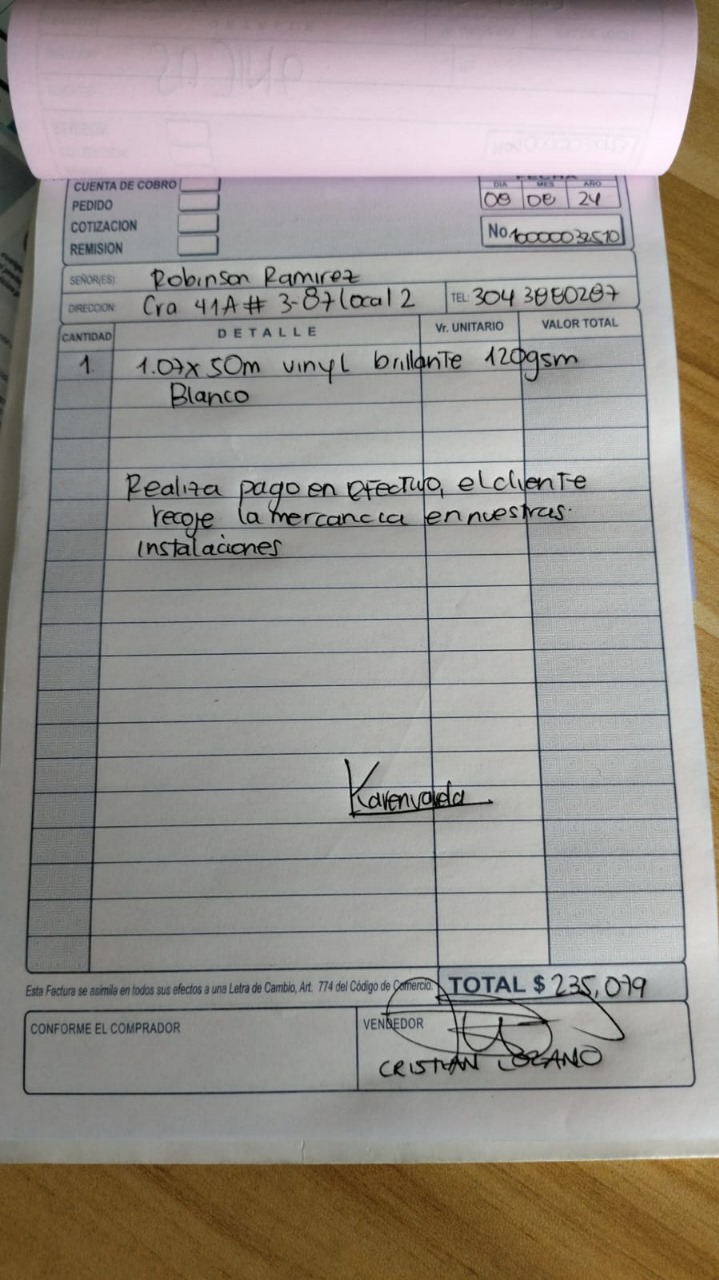 CUENTA DE COBRO
PEDIDO
COTIZACION
REMISION
FECHA
DIA MES AÑO
08 08 24
No 10000032510
SEÑOR(ES): Robinson Ramirez
DIRECCION: Cra 41A # 3-87 local 2 TEL: 304 3880287
CANTIDAD DETALLE Vr. UNITARIO VALOR TOTAL
1. 1.07x 50m vinyl brillante 120gsm
Blanco
Realiza pago en efectivo, el cliente
recoje la mercancia en nuestras.
instalaciones
Karenvarela
Esta Factura se asimila en todos sus efectos a una Letra de Cambio, Art. 774 del Código de Comercio. TOTAL $ 235,079
CONFORME EL COMPRADOR VENDEDOR
CRISTIAN LOZANO